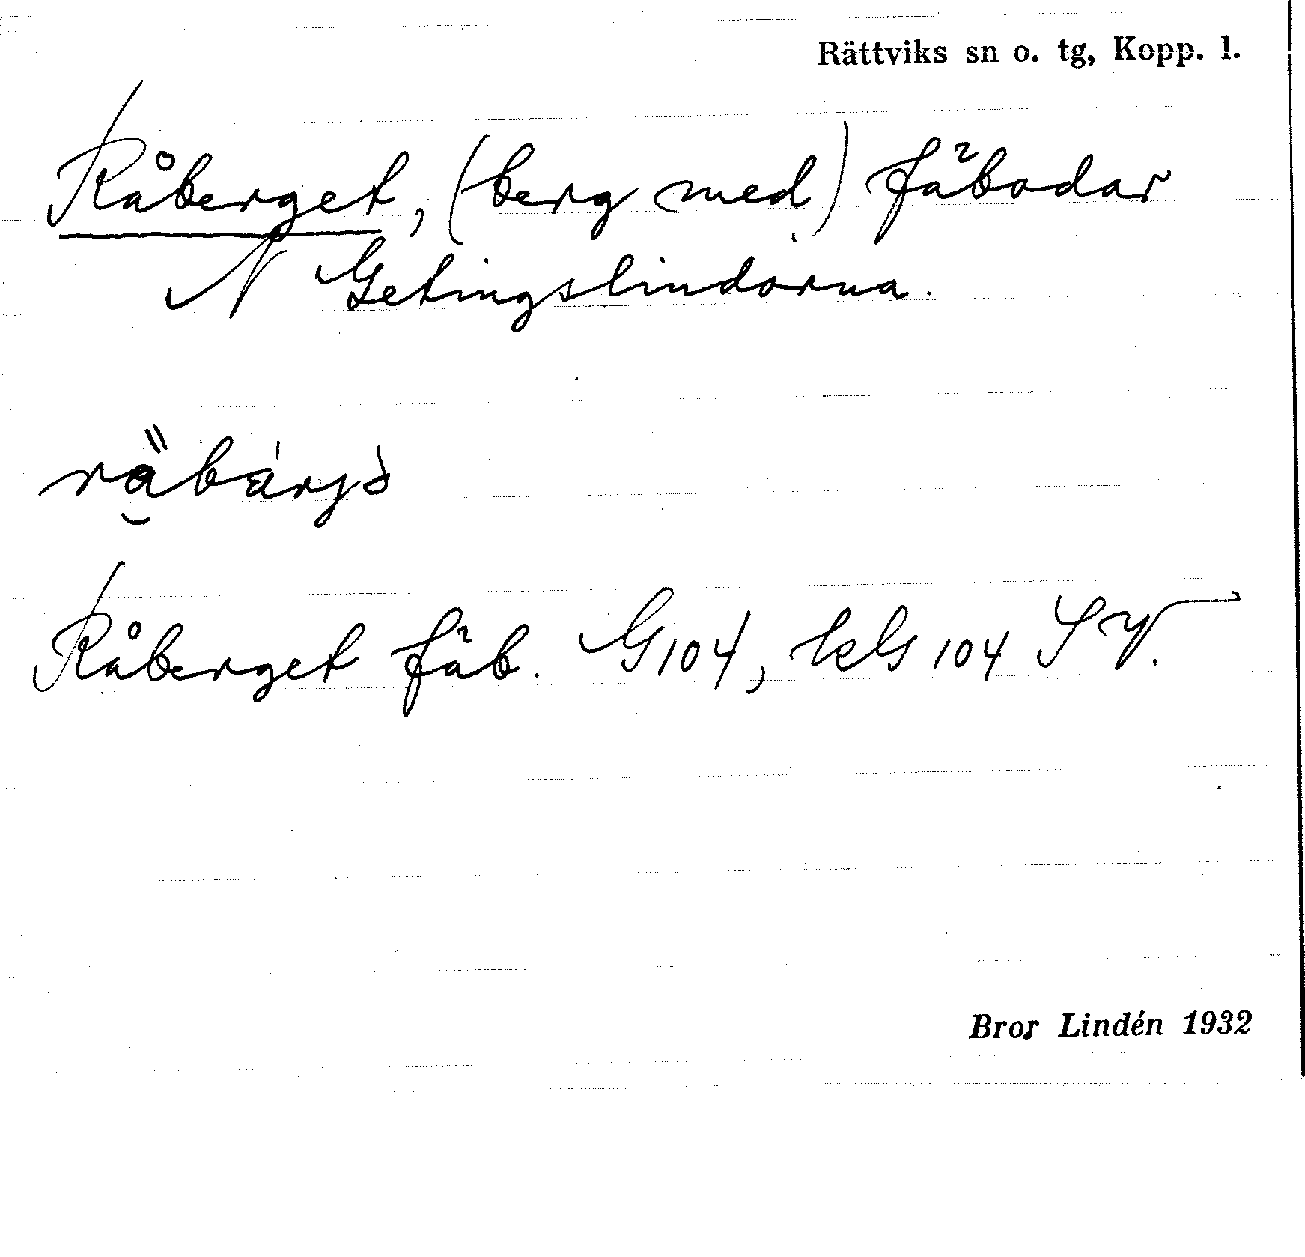 Rättviks sn o. tg, Kopp. l.
Råberget, (berg med) fäbodar
N Getingslindorna.
Råberget fäb. G104, kG 104 SV.
Bror Lindén 1932